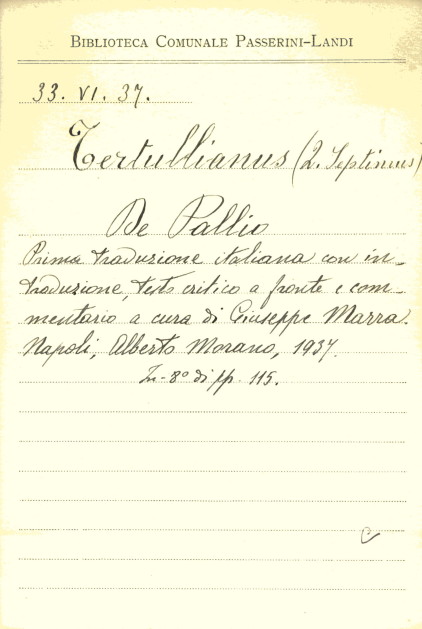 BIBLIOTECA COMUNALE PASSERINI-LANDI
33. VI. 37.
Tertullianus (2. Septimus)
De Pallio
Prima traduzione italiana con in-
traduzione, testo critico a fronte e com-
mentario a cura di Giuseppe Marra.
Napoli, Alberto Morano, 1937.
In-8° di pp. 115.